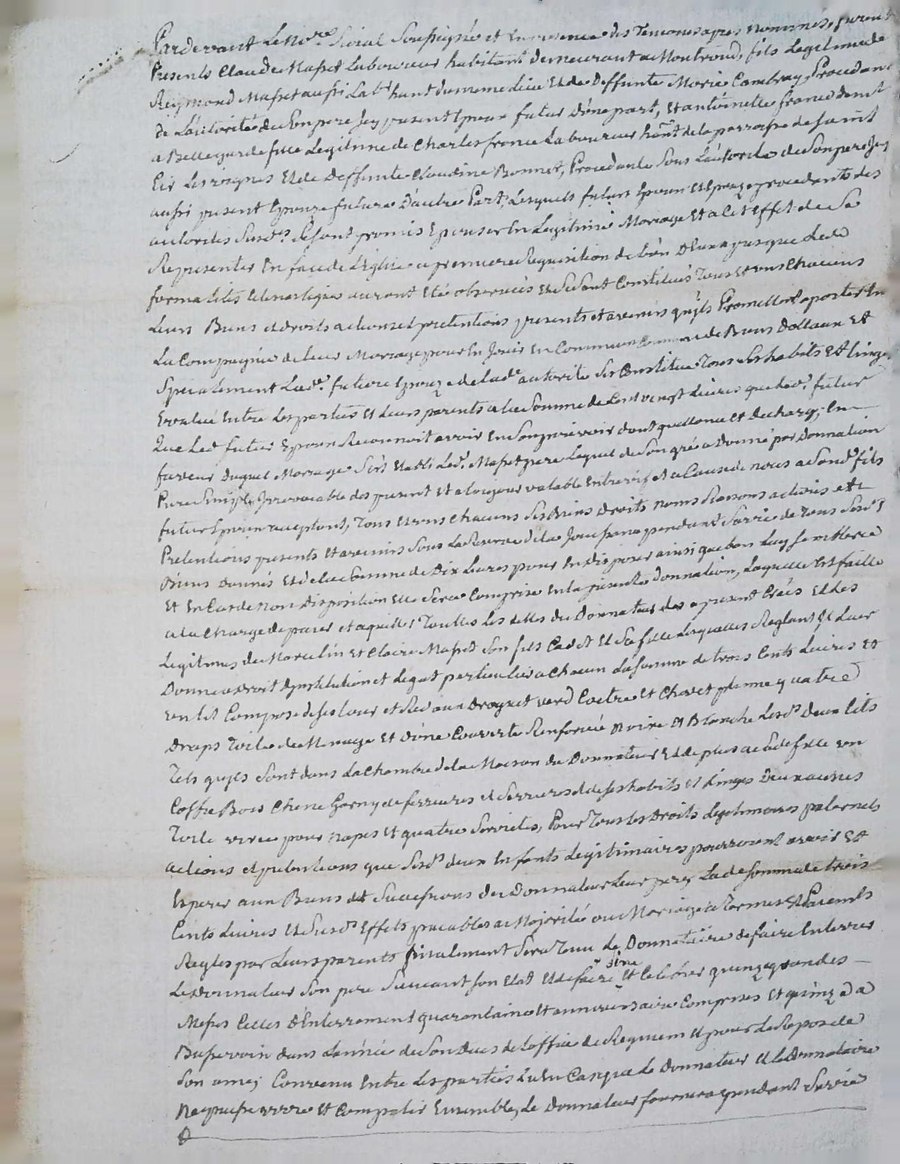 Pardevant Le No.re Roial Soussigné et En presence des Temoins apres nommes, furent
Presents Claude Maset Laboureur habitant demeurant a Montrond, fils Legitime de
Reymond Maset aussi Lab.r han.t du meme lieu Et de Deffunte Marie Combray, Procedant
de L'autorité du Sonpere Jcy present Epoux futur D'une part, Et antoinette france demt
a Bellegarde fille Legitime de Charles france Laboureur de la parroisse de saint
Cir Les vignes Et de Deffunte Claudine Bonnet, Procedante Sous L'autorité de Sonpere Jcy
aussi present Epouze future D'autre Part; Lesquels futurs Epoux et Epouze procedants des
autorités Susd.s Se sont promis Epouser En Legitime Mariage Et a cet Effet de Se
Representer En face de L'Eglise a premiere Requisition de L'un D'Eux jusque Les
formalités auront Eté observées Et Se Sont Constitués Tous Et uns Chacuns
Leurs Biens et droits actions et pretentions presents et avenir qu'ils Promettent aporter En
La Compagnie de leur Mariage pour En Jouir En Commun de Biens Dottaux Et
Specialement Lad.e future Epouze de lad.e autorité Se Constitue Tous Ses habits Et linges
Evalué Entre Les parties Et Leurs parents a La Somme de Cent vingt Livres que led.t futur
Que Led.t futur Epoux Reconnoit avoir En Son pouvoir dont quittance et decharge; En
faveur Duquel Mariage S'est Etabli Led.t Maset pere Lequel de Son gré a Donné par Donnation
Pure Simple Irrevocable des present Et a toujour valable Entre vifs Et a Cause de noces a Sond.t fils
futur Epoux acceptant, Tous Et uns Chacuns Ses Biens Droits noms Raisons actions Et
Pretentions presents Et avenirs Sous La Reserve de La Jouissance pendant Sa vie de Tous Sesd.s
Biens Donnés Et de La Somme de Dix Livres pour En disposer ainsi que bon Luy Semblera
Et En Cas de Non Disposition Elle Sera Comprise En la presente Donnation, Laquelle Est faitte
a La Charge de payer et aquitter Toutes Les dettes du Donnateur des a present Créés Et Les
Legitimes de Marcelin et Claire Maset Son fils Cadet Et Sa fille Lesquelles Reglant Et Leur
Donne a Droit d'Institution et Legat particulier a Chacun La Somme de trois Cents Livres Et
un Lit Composé de Ses Tour et Rideaux Droguet verd Coitre Et Chevet plume quatre
Draps Toile de Menage Et D'une Couverte Renforcée Noire Et Blanche Lesd.s Deux Lits
Tels qu'ils Sont dans La Chambre de La Maison du Donnateur Et de plus a Sad.e fille un
Coffre Bois Chene Garny de ferrures et Serrures de Ses habits Et Linges Deux aunes
Toile pour napes Et quatre Serviettes, Pour Tous les Droits Legitimaires paternels
actions et pretentions que Sesd.s deux Enfants Legitimaires pourroient avoir Et
Esperer aux Biens et Successions du Donnateur Leur pere; Lad.e Somme de trois
Cents Livres Et Susd.s Effets payables a Majorité ou Mariage a Termes Et Paiements
Reglés par Leurs parents finalement Sera Tenu Le Donnataire de faire Enterrer
Le Donnateur Son pere Suivant Son Etat Et de faire dire Et Celebrer quinze grandes
Messes Celles D'Enterrement quarantaine et anniversaire Comprises Et quinze a
Basse voix dans L'année de Son Deces de L'office de Requiem Et pour Le Repos de
Son ame; Convenu Entre Les parties Qu'En Cas que Le Donnateur Et Le Donnataire
Ne puissent vivre Et Compatir Ensemble, Le Donnateur pendant Sa vie